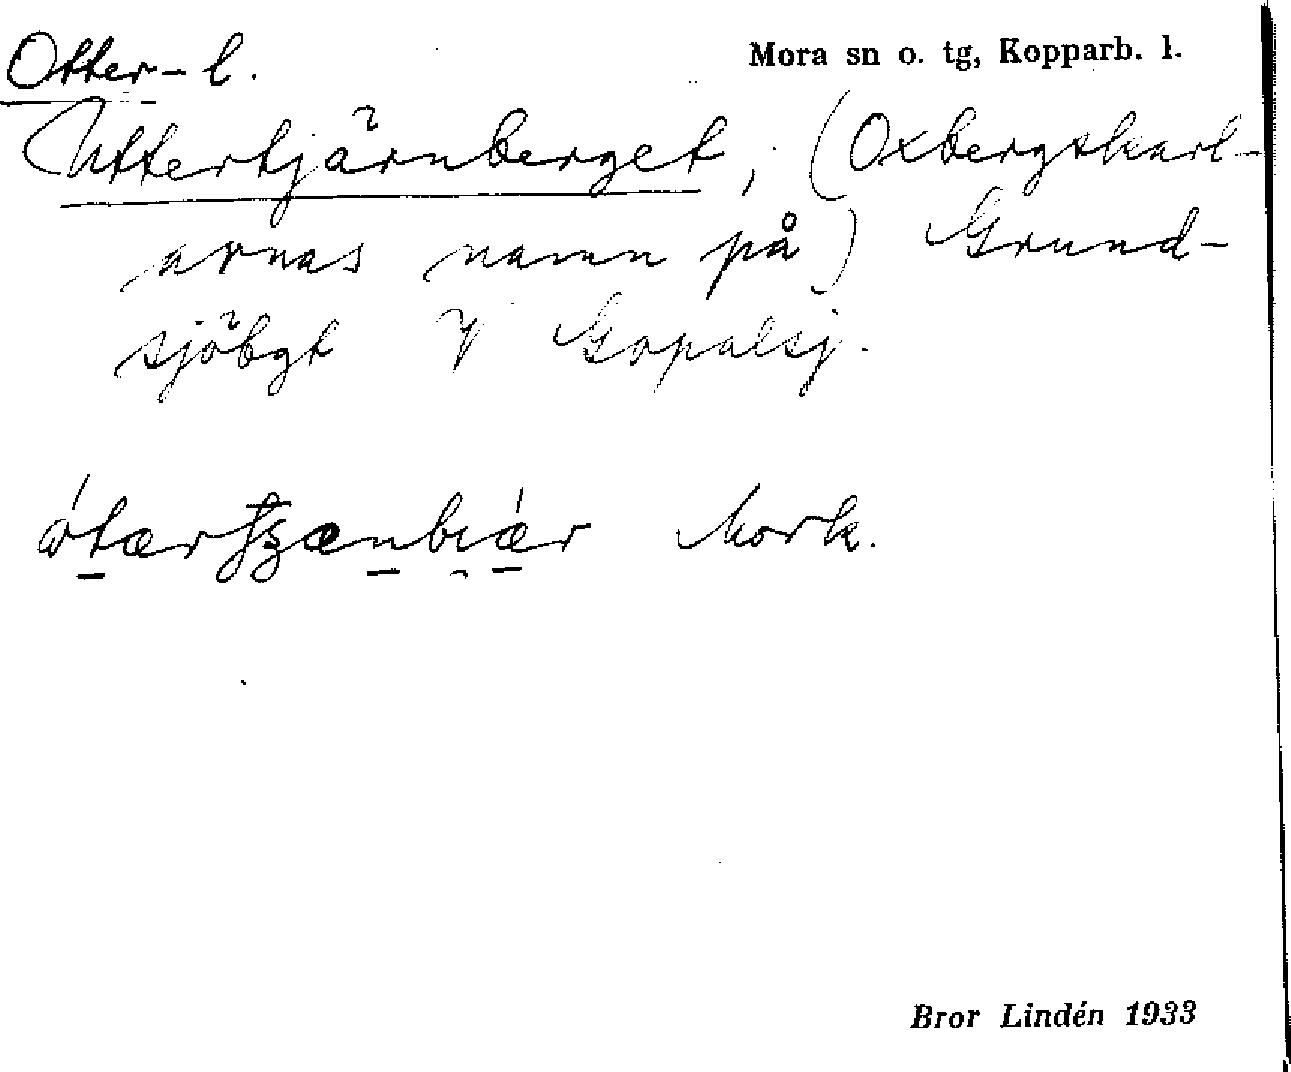 Otter- l.
Mora sn o. tg, Kopparb. l.
Uttertjärnberget, (Oxbergskarl-
arnas namn på) Grund-
sjöbgt V Gopalsj.
Mork.
Bror Lindén 1933